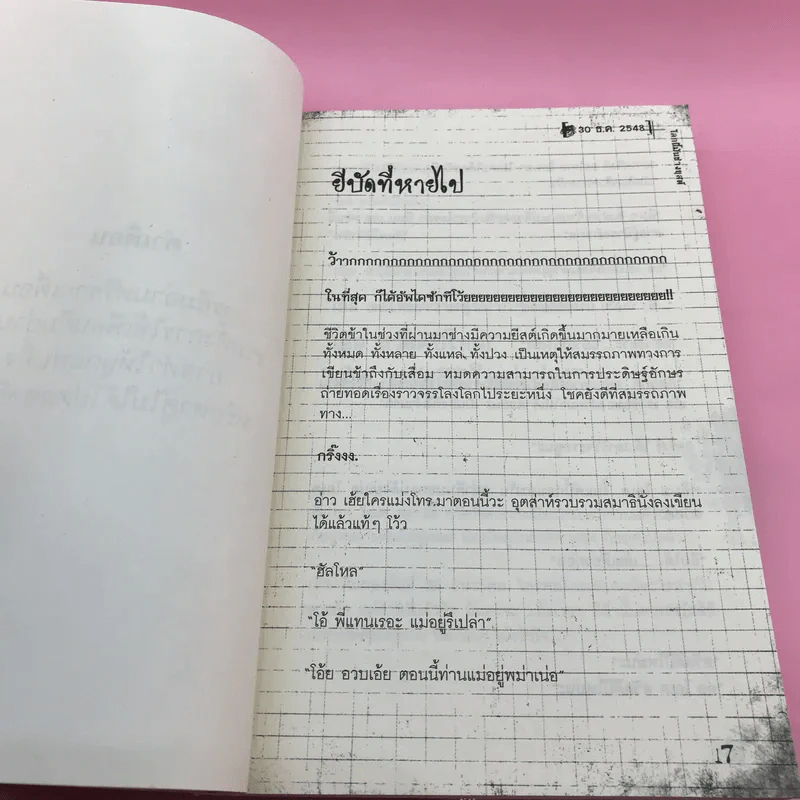 30 ธ.ค. 2548
ฮีบัดที่หายไป
ว้ากกกกกกกกกกกกกกกกกกกกกกกกกกกกกกกกกกกกกกก
ในที่สุด ก็ได้อัพไดซักทีโว้ยยยยยยยยยยยยยยยยยยยยยยยยยย!!
ชีวิตข้าในช่วงที่ผ่านมาช่างมีความยีสต์เกิดขึ้นมากมายเหลือเกิน
ทั้งหมด ทั้งหลาย ทั้งแหล่ ทั้งปวง เป็นเหตุให้สมรรถภาพทางการ
เขียนข้าถึงกับเสื่อม หมดความสามารถในการประดิษฐ์อักษร
ถ่ายทอดเรื่องราวจรรโลงโลกไประยะหนึ่ง โชคยังดีที่สมรรถภาพ
ทาง...
กริ๊งงง.
อ่าว เฮ้ยใครแม่งโทร.มาตอนนี้วะ อุตส่าห์รวบรวมสมาธินั่งลงเขียน
ได้แล้วแท้ๆ โว้ว
"ฮัลโหล"
"โอ้ พี่แทนเรอะ แม่อยู่รึเปล่า"
"โอ้ย อวบเอ้ย ตอนนี้ท่านแม่อยู่พม่าเน่อ"
17